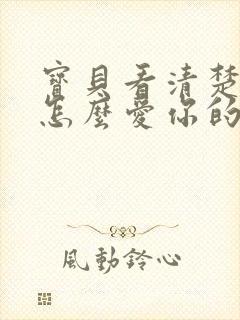 寶貝看清楚
怎麼愛你的
風動鈴心